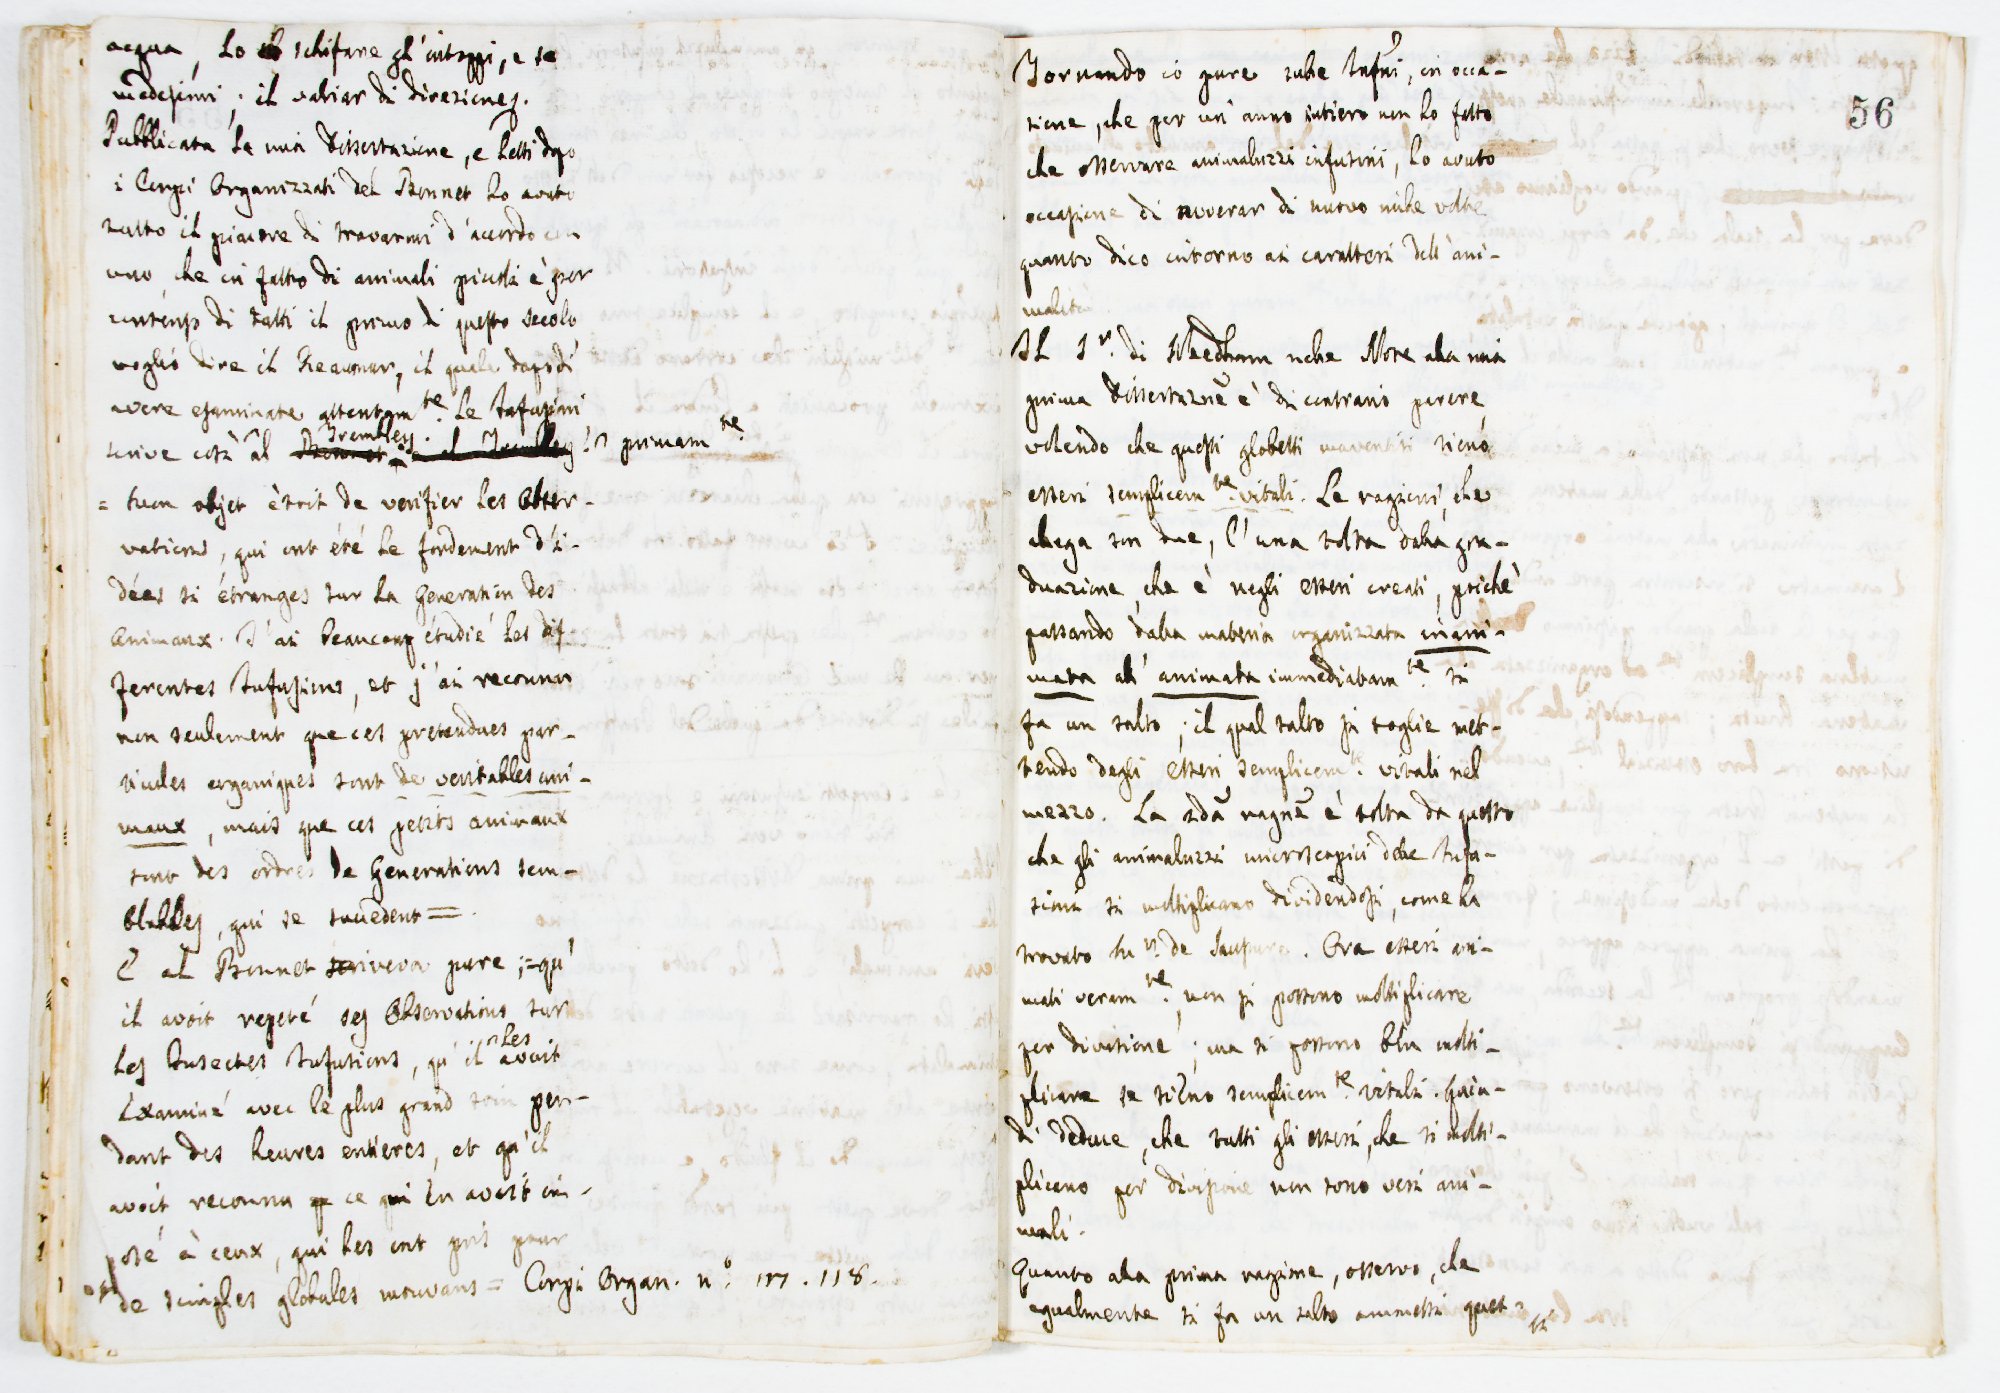 acqua, lo schifare gl'intoppi, e se
medesimi, il variar di direzione.
Pubblicata la mia Dissertazione, e letti dopo
i Corpi Organizzati del Bonnet ho avuto
tutto il piacere di trovarmi d'accordo con
uno, che in fatto di animali piccoli è per
consenso di tutti il primo di questo secolo
voglio dire il Reaumur, il quale dopo di
avere esaminate attentam.te le Infusioni
scrive così al Trembley primam.te
= Mon objet ètoit de verifier les obser-
vations, qui ont été le fondement d'i-
dées si étranges sur la Generation des
Animaux. J'ai beaucoup étudié les dif
ferentes Infusions, et j'ai reconnu
non seulement que ces pretendues par-
ticules organiques sont de veritables ani-
maux, mais que ces petits animaux
sont des ordres de Generations sem-
blables, qui se succedent =
E al Bonnet scriveva pure; = qu'
il avoit repeté ses Observations sur
les Insectes Infusions, qu'il les avoit
Examiné avec le plus grand soin pen-
dant des heures entieres, et qu'il
avoit reconnu ce qui en avoit im-
posé à ceux, qui les ont pris pour
de simples globules mouvans = Corpi Organ. n.o 117. 118.
56
Tornando io pure sulle Infus.ni, in occa-
sione, che per un anno intiero non ho fatto
che osservare animaluzzi infusorii, ho avuto
occasione di avverar di nuovo mille volte
quanto dico intorno ai caratteri dell'ani-
malità
Il S.r di Needham nelle Note alla mia
prima Dissertazne è di contrario parere
volendo che questi globetti moventisi sieno
esseri semplicem.te vitali. Le ragioni, che
allega son due, l'una tolta dalla gra-
duazione, che è negli esseri creati, poichè
passando dalla materia organizzata inani-
mata all'animata immediatam.te si
fa un salto; il qual salto si toglie met-
tendo degli esseri semplicem.te vitali nel
mezzo. La 2da ragne è tolta da questo
che gli animaluzzi microscopici delle Infu-
sioni si moltiplicano dividendosi, come ha
trovato M.r de Saussure. Ora esseri ani-
mati veram.te, non si possono moltiplicare
per divisione; ma si possono moltì-
plicare se sieno semplicem.te vitali. Quin-
di deduce, che tutti gli esseri, che si molti-
plicano per divisione non sono veri ani-
mali.
Quanto alla prima ragione, osservo, che
egualmente si fa un salto ammessi questi